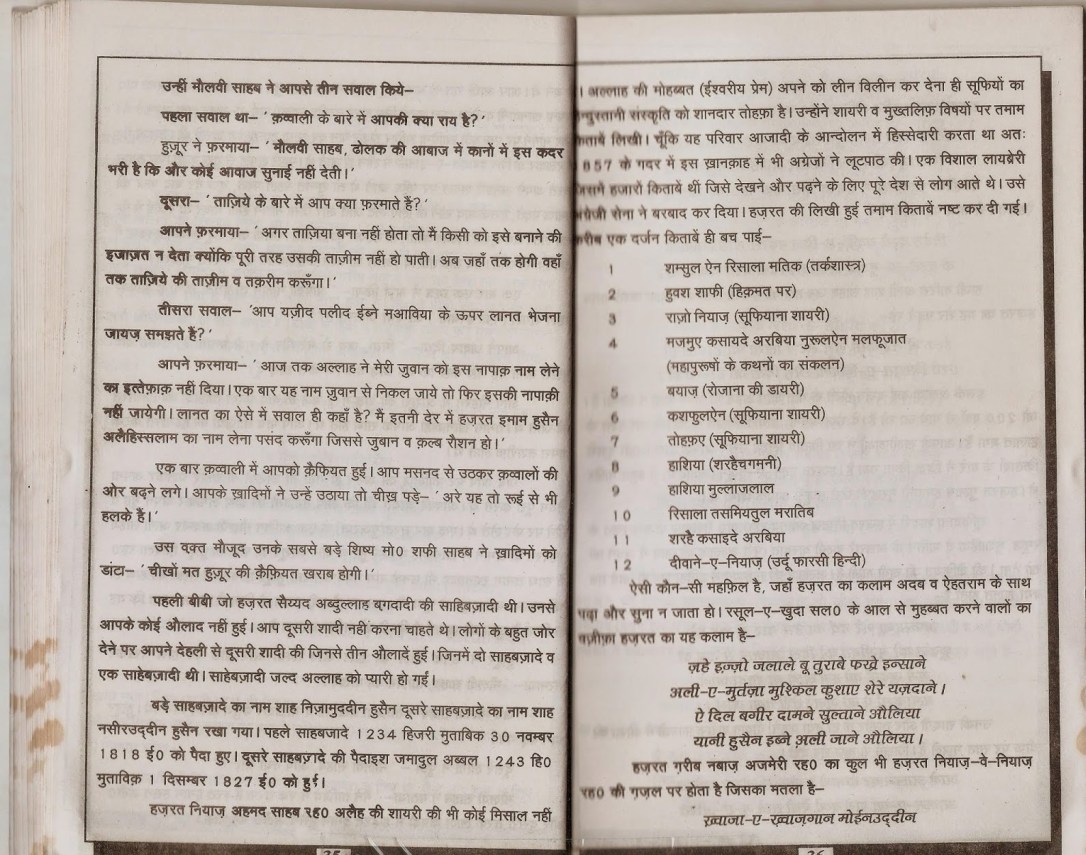 उन्हीं मौलवी साहब ने आपसे तीन सवाल किये–
पहला सवाल था– ' क़व्वाली के बारे में आपकी क्या राय है? '
हुज़ूर ने फ़रमाया– ' मौलवी साहब, ढोलक की आबाज में कानों में इस कदर
भरी है कि और कोई आवाज सुनाई नहीं देती।'
दूसरा– ' ताज़िये के बारे में आप क्या फ़रमाते हैं? '
आपने फ़रमाया– ' अगर ताज़िया बना नहीं होता तो मैं किसी को इसे बनाने की
इजाज़त न देता क्योंकि पूरी तरह उसकी ताज़ीम नहीं हो पाती। अब जहाँ तक होगी वहाँ
तक ताज़िये की ताज़ीम व तक़रीम करूँगा।'
तीसरा सवाल– 'आप यज़ीद पलीद ईब्ने मआविया के ऊपर लानत भेजना
जायज़ समझते हैं? '
आपने फ़रमाया– ' आज तक अल्लाह ने मेरी जुवान को इस नापाक़ नाम लेने
का इत्तेफ़ाक़ नहीं दिया। एक बार यह नाम ज़ुवान से निकल जाये तो फिर इसकी नापाक़ी
नहीं जायेगी। लानत का ऐसे में सवाल ही कहाँ है? मैं इतनी देर में हज़रत इमाम हुसैन
अलैहिस्सलाम का नाम लेना पसंद करूँगा जिससे जुबान व क़ल्ब रौशन हो।'
एक बार क़व्वाली में आपको क़ैफ़ियत हुई। आप मसनद से उठकर क़व्वालों की
ओर बढ़ने लगे। आपके ख़ादिमों ने उन्हें उठाया तो चीख़ पड़े– ' अरे यह तो रूई से भी
हलके हैं।'
उस वक़्त मौजूद उनके सबसे बड़े शिष्य मो0 शफी साहब ने ख़ादिमों को
डांटा– ' चीखों मत हुज़ूर की क़ैफ़ियत खराब होगी।'
पहली बीबी जो हज़रत सैय्यद अब्दुल्लाह बग़दादी की साहिबज़ादी थी। उनसे
आपके कोई औलाद नहीं हुई। आप दूसरी शादी नही करना चाहते थे। लोगों के बहुत जोर
देने पर आपने देहली से दूसरी शादी की जिनसे तीन औलादें हुई। जिनमें दो साहबज़ादे व
एक साहेबज़ादी थी। साहेबज़ादी जल्द अल्लाह को प्यारी हो गई।
बड़े साहबज़ादे का नाम शाह निज़ामुददीन हुसैन दूसरे साहबज़ादे का नाम शाह
नसीरउद्दीन हुसैन रखा गया। पहले साहबजादे 1234 हिजरी मुताबिक 30 नवम्बर
1818 ई0 को पैदा हुए। दूसरे साहबज़ादे की पैदाइश जमादुल अब्बल 1243 हि0
मुताविक़ 1 दिसम्बर 1827 ई0 को हुई।
हज़रत नियाज़ अहमद साहब रह0 अलैह की शायरी की भी कोई मिसाल नहीं
25
। अल्लाह की मोहब्बत (ईश्वरीय प्रेम) अपने को लीन विलीन कर देना ही सूफियों का
न्दुस्तानी संस्कृति को शानदार तोहफ़ा है। उन्होंने शायरी व मुख्तलिफ़ विषयों पर तमाम
किताबें लिखी। चूँकि यह परिवार आजादी के आन्दोलन में हिस्सेदारी करता था अतः
857 के गदर में इस ख़ानक़ाह में भी अग्रेजों ने लूटपाठ की। एक विशाल लायबेरी
जिसमें हजारों किताबें थीं जिसे देखने और पढ़ने के लिए पूरे देश से लोग आते थे। उसे
अंग्रेजी सेना ने बरबाद कर दिया। हज़रत की लिखी हुई तमाम किताबें नष्ट कर दी गई।
करीब एक दर्जन किताबें ही बच पाई–
1 शम्सुल ऐन रिसाला मतिक (तर्कशास्त्र)
2 हुवश शाफी (हिक़मत पर)
3 राज़ो नियाज़ (सूफियाना शायरी)
4 मजमुए कसायदे अरबिया नुरूलऐन मलफूजात
(महापुरूषों के कथनों का संकलन)
5 बयाज़ (रोजाना की डायरी)
6 कशफुलऐन (सूफियाना शायरी)
7 तोहफ़ए (सूफियाना शायरी)
8 हाशिया (शरहैचगमनी)
9 हाशिया मुल्लाजलाल
10 रिसाला तसमियतुल मरातिब
11 शरहै कसाइदे अरबिया
12 दीवाने-ए-नियाज़ (उर्दू फारसी हिन्दी)
ऐसी कौन-सी महफ़िल है, जहाँ हज़रत का कलाम अदब व ऐहतराम के साथ
पढ़ा और सुना न जाता हो। रसूल-ए-खुदा सल0 के आल से मुहब्बत करने वालों का
वज़ीफ़ा हज़रत का यह कलाम है–
ज़हे इज़्ज़ो जलाले बू तुराबे फख्रे इन्साने
अली-ए-मुर्तज़ा मुश्किल कुशाए शेरे यज़दाने।
ऐ दिल बगीर दामने सुल्ताने औलिया
यानी हुसैन इब्ने अ़ली जाने औलिया।
हज़रत ग़रीब नबाज़ अजमेरी रह0 का कुल भी हज़रत नियाज़-वे-नियाज़
रह0 की ग़ज़ल पर होता है जिसका मतला है–
ख़्वाजा-ए-ख़्वाज़गान मोईनउद्दीन
26